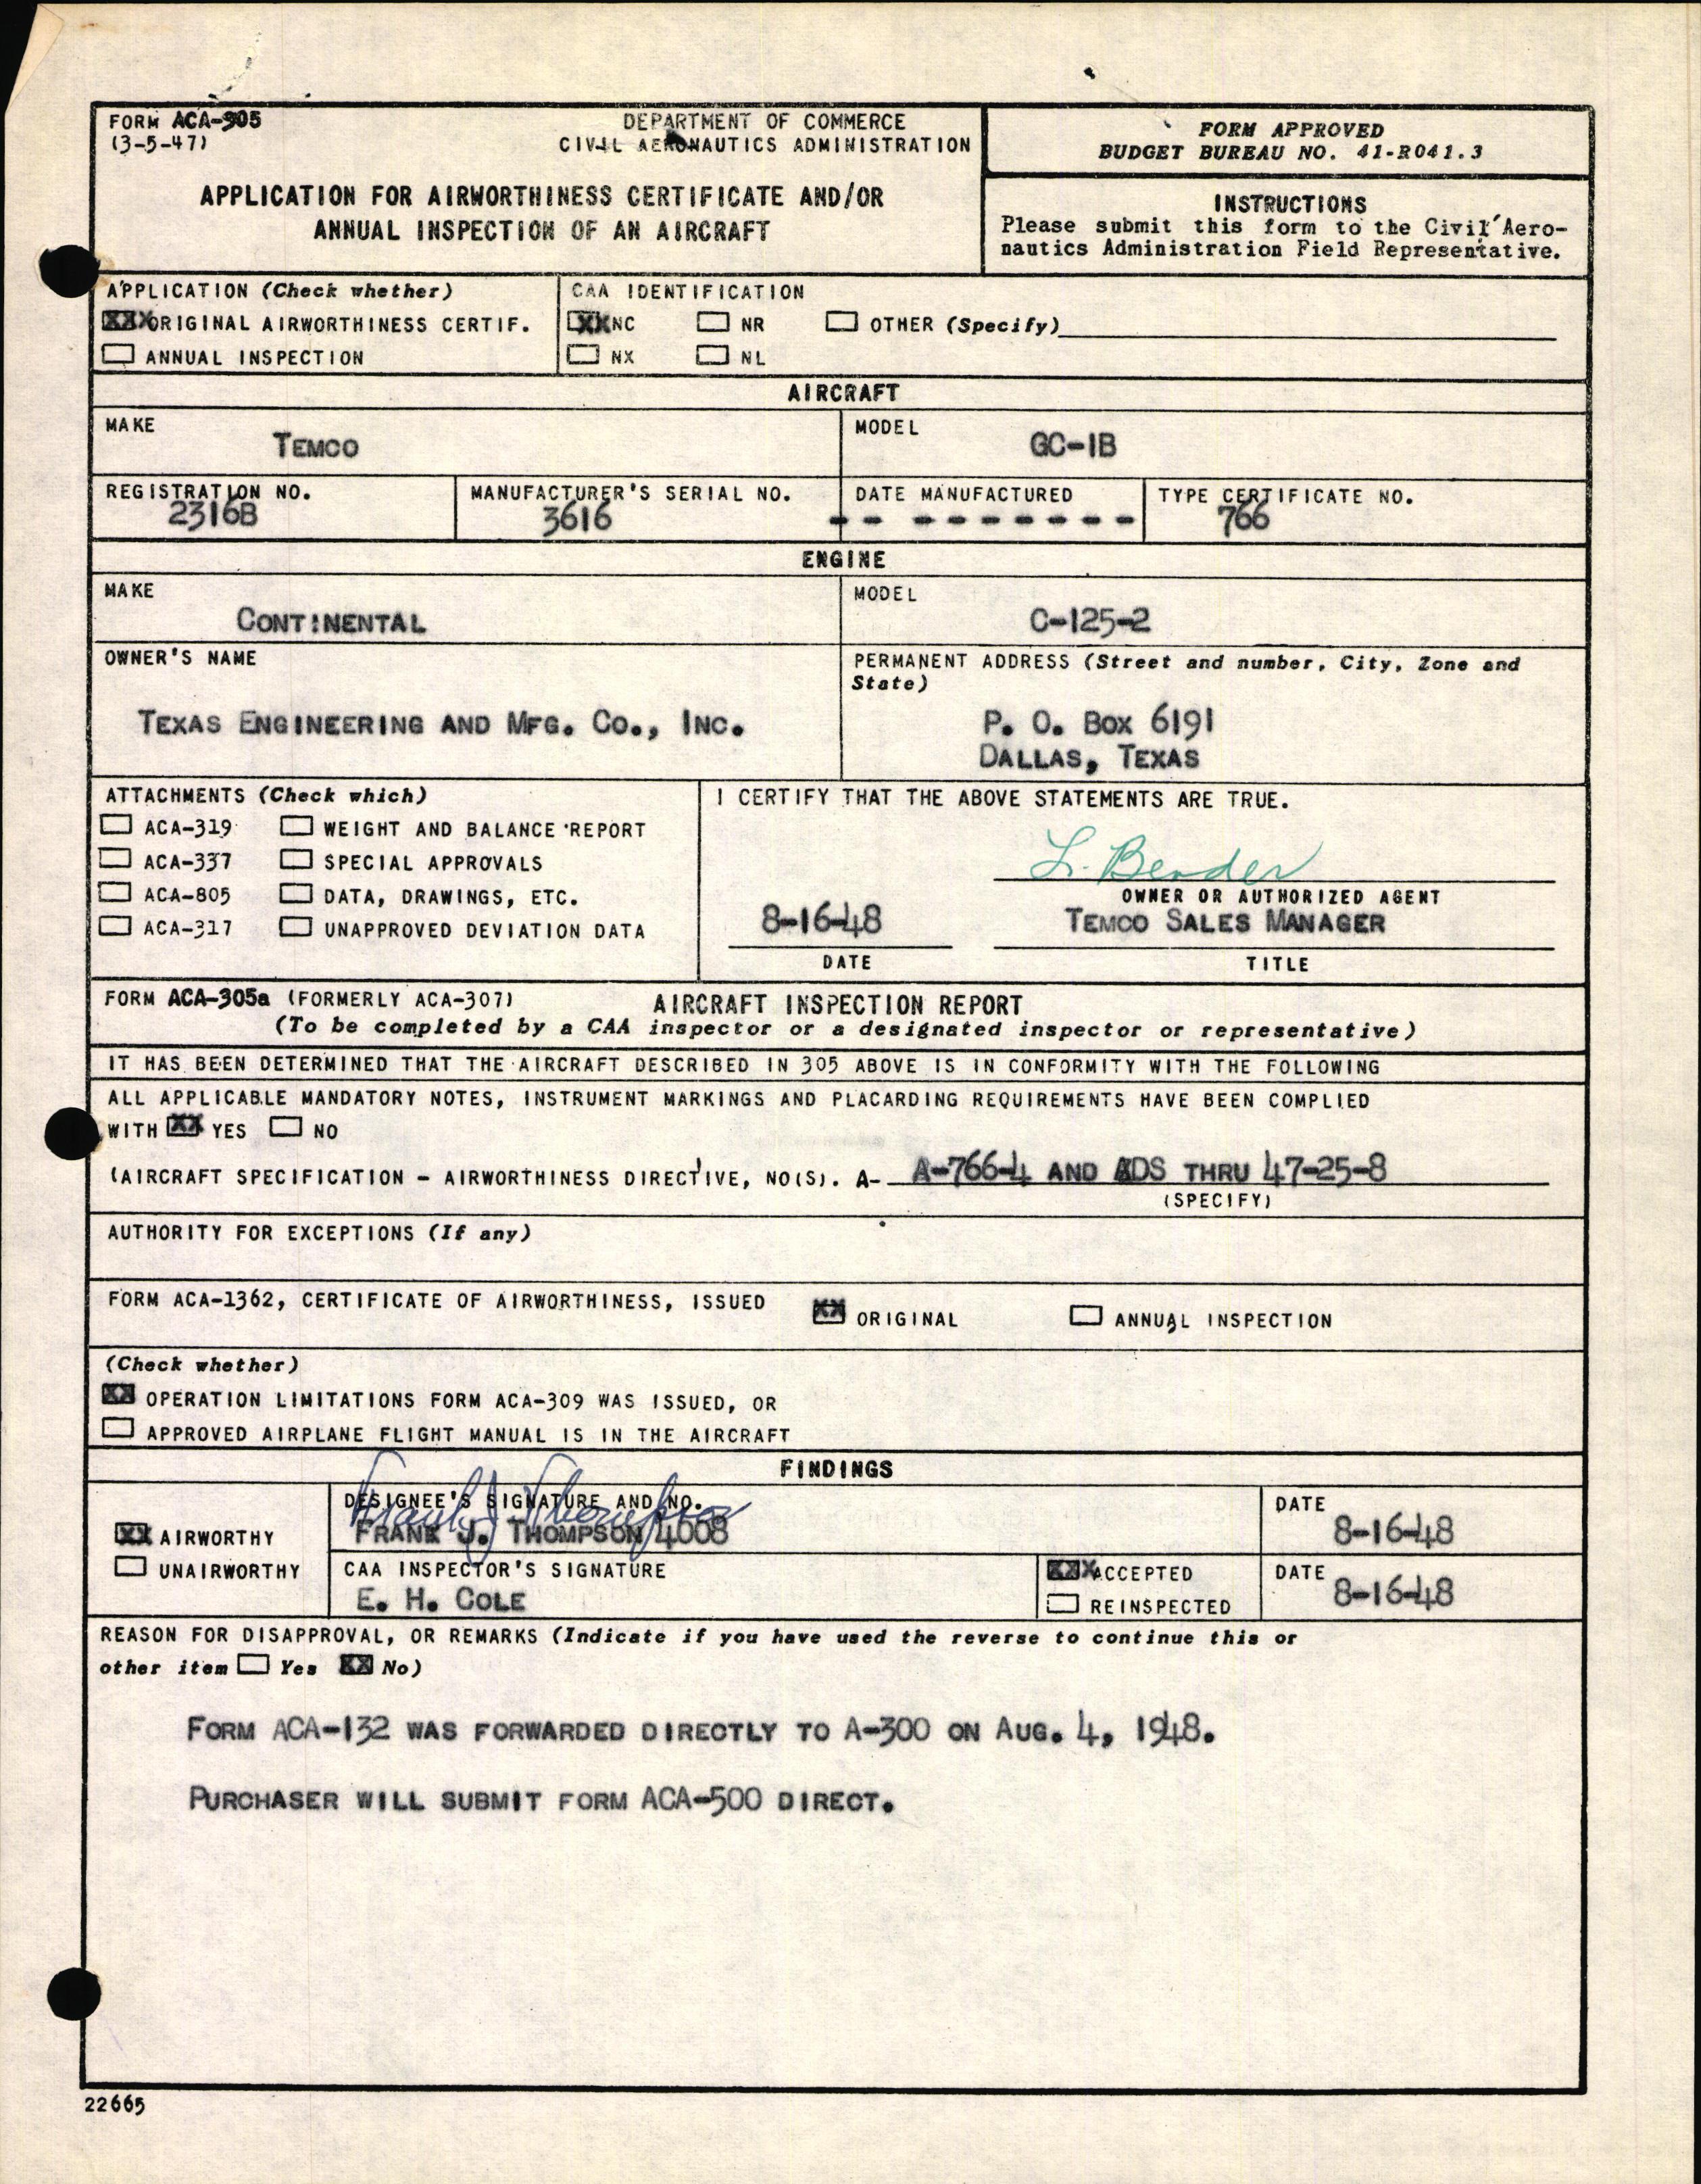 FORM ACA-305
(3-5-47)
DEPARTMENT OF COMMERCE
CIVIL AERONAUTICS ADMINISTRATION
APPLICATION FOR AIRWORTHINESS CERTIFICATE AND/OR
ANNUAL INSPECTION OF AN AIRCRAFT
FORM APPROVED
BUDGET BUREAU NO. 41-R041.3
INSTRUCTIONS
Please submit this form to the Civil Aero-
nautics Administration Field Representative.
APPLICATION (Check whether)
XXX ORIGINAL AIRWORTHINESS CERTIF.
ANNUAL INSPECTION
CAA IDENTIFICATION
XX NC NR OTHER (Specify)
NX NL
AIRCRAFT
MAKE
TEMCO
MODEL
GC-1B
REGISTRATION NO.
2316B
MANUFACTURER'S SERIAL NO.
3616
DATE MANUFACTURED
-- -------
TYPE CERTIFICATE NO.
766
ENGINE
MAKE
CONTINENTAL
MODEL
C-125-2
OWNER'S NAME
TEXAS ENGINEERING AND MFG. CO., INC.
PERMANENT ADDRESS (Street and number, City, Zone and
State)
P. O. BOX 6191
DALLAS, TEXAS
ATTACHMENTS (Check which)
ACA-319 WEIGHT AND BALANCE REPORT
ACA-337 SPECIAL APPROVALS
ACA-805 DATA, DRAWINGS, ETC.
ACA-317 UNAPPROVED DEVIATION DATA
I CERTIFY THAT THE ABOVE STATEMENTS ARE TRUE.
L. Bender
OWNER OR AUTHORIZED AGENT
8-16-48 TEMCO SALES MANAGER
DATE TITLE
FORM ACA-305a (FORMERLY ACA-307) AIRCRAFT INSPECTION REPORT
(To be completed by a CAA inspector or a designated inspector or representative)
IT HAS BEEN DETERMINED THAT THE AIRCRAFT DESCRIBED IN 305 ABOVE IS IN CONFORMITY WITH THE FOLLOWING
ALL APPLICABLE MANDATORY NOTES, INSTRUMENT MARKINGS AND PLACARDING REQUIREMENTS HAVE BEEN COMPLIED
WITH XX YES NO
(AIRCRAFT SPECIFICATION - AIRWORTHINESS DIRECTIVE, NO(S). A- A-766-4 AND ADS THRU 47-25-8
(SPECIFY)
AUTHORITY FOR EXCEPTIONS (If any)
FORM ACA-1362, CERTIFICATE OF AIRWORTHINESS, ISSUED XX ORIGINAL ANNUAL INSPECTION
(Check whether)
XX OPERATION LIMITATIONS FORM ACA-309 WAS ISSUED, OR
APPROVED AIRPLANE FLIGHT MANUAL IS IN THE AIRCRAFT
FINDINGS
XX AIRWORTHY
UNAIRWORTHY
DESIGNEE'S SIGNATURE AND NO.
Frank J. Thompson
FRANK J. THOMPSON 4008
DATE
8-16-48
CAA INSPECTOR'S SIGNATURE
E. H. COLE
XXX ACCEPTED
REINSPECTED
DATE
8-16-48
REASON FOR DISAPPROVAL, OR REMARKS (Indicate if you have used the reverse to continue this or
other item Yes XX No)
FORM ACA-132 WAS FORWARDED DIRECTLY TO A-300 ON AUG. 4, 1948.
PURCHASER WILL SUBMIT FORM ACA-500 DIRECT.
22665